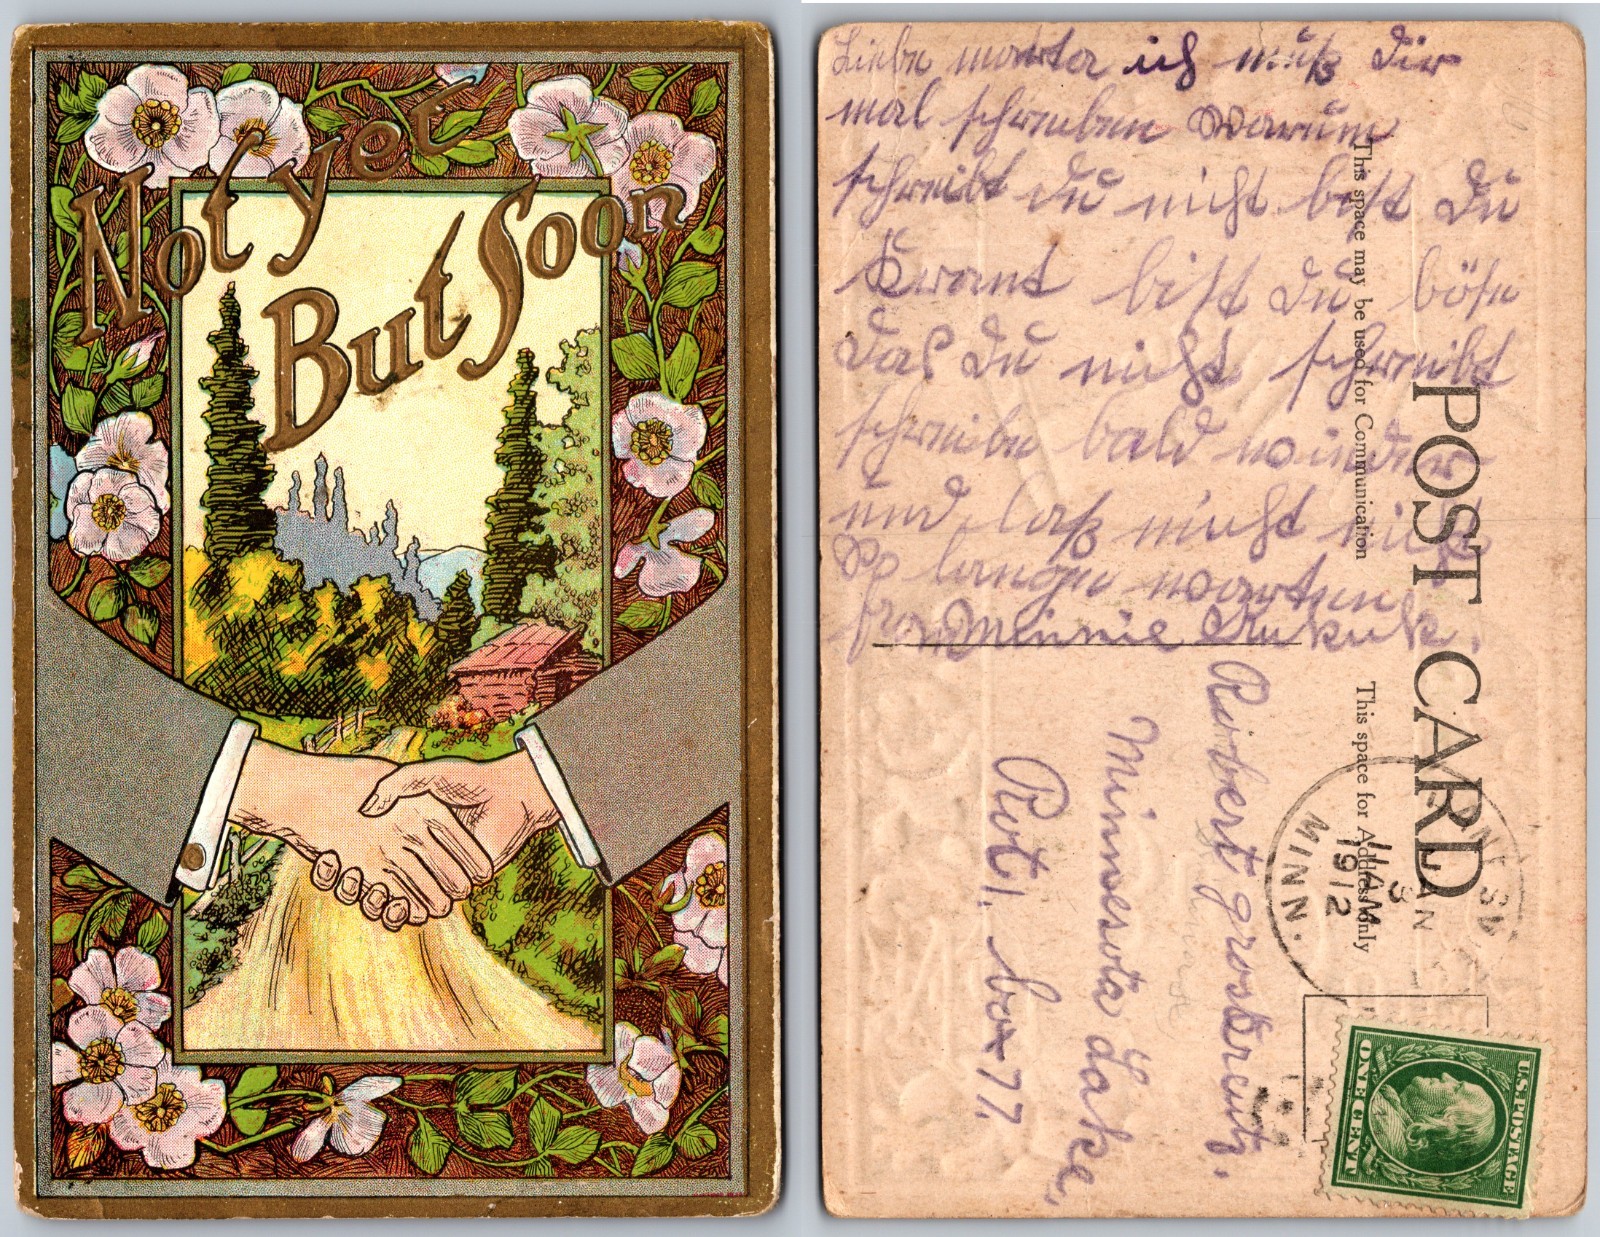 Not yet
But Soon
Liebe marta ich muß dir
mal schreiben warum
schreibst du nicht bist du
krank bist du böse
das du nicht schreibst
schreibe bald wieder
und laß mich nicht
so lange warten
from Minnie
POST CARD
This space may be used for Communication
This space for Address Only
Minnesota Lake,
Rot 1, box 77,
JAN
3
11 AM
1912
MINN.
U.S. POSTAGE
ONE CENT